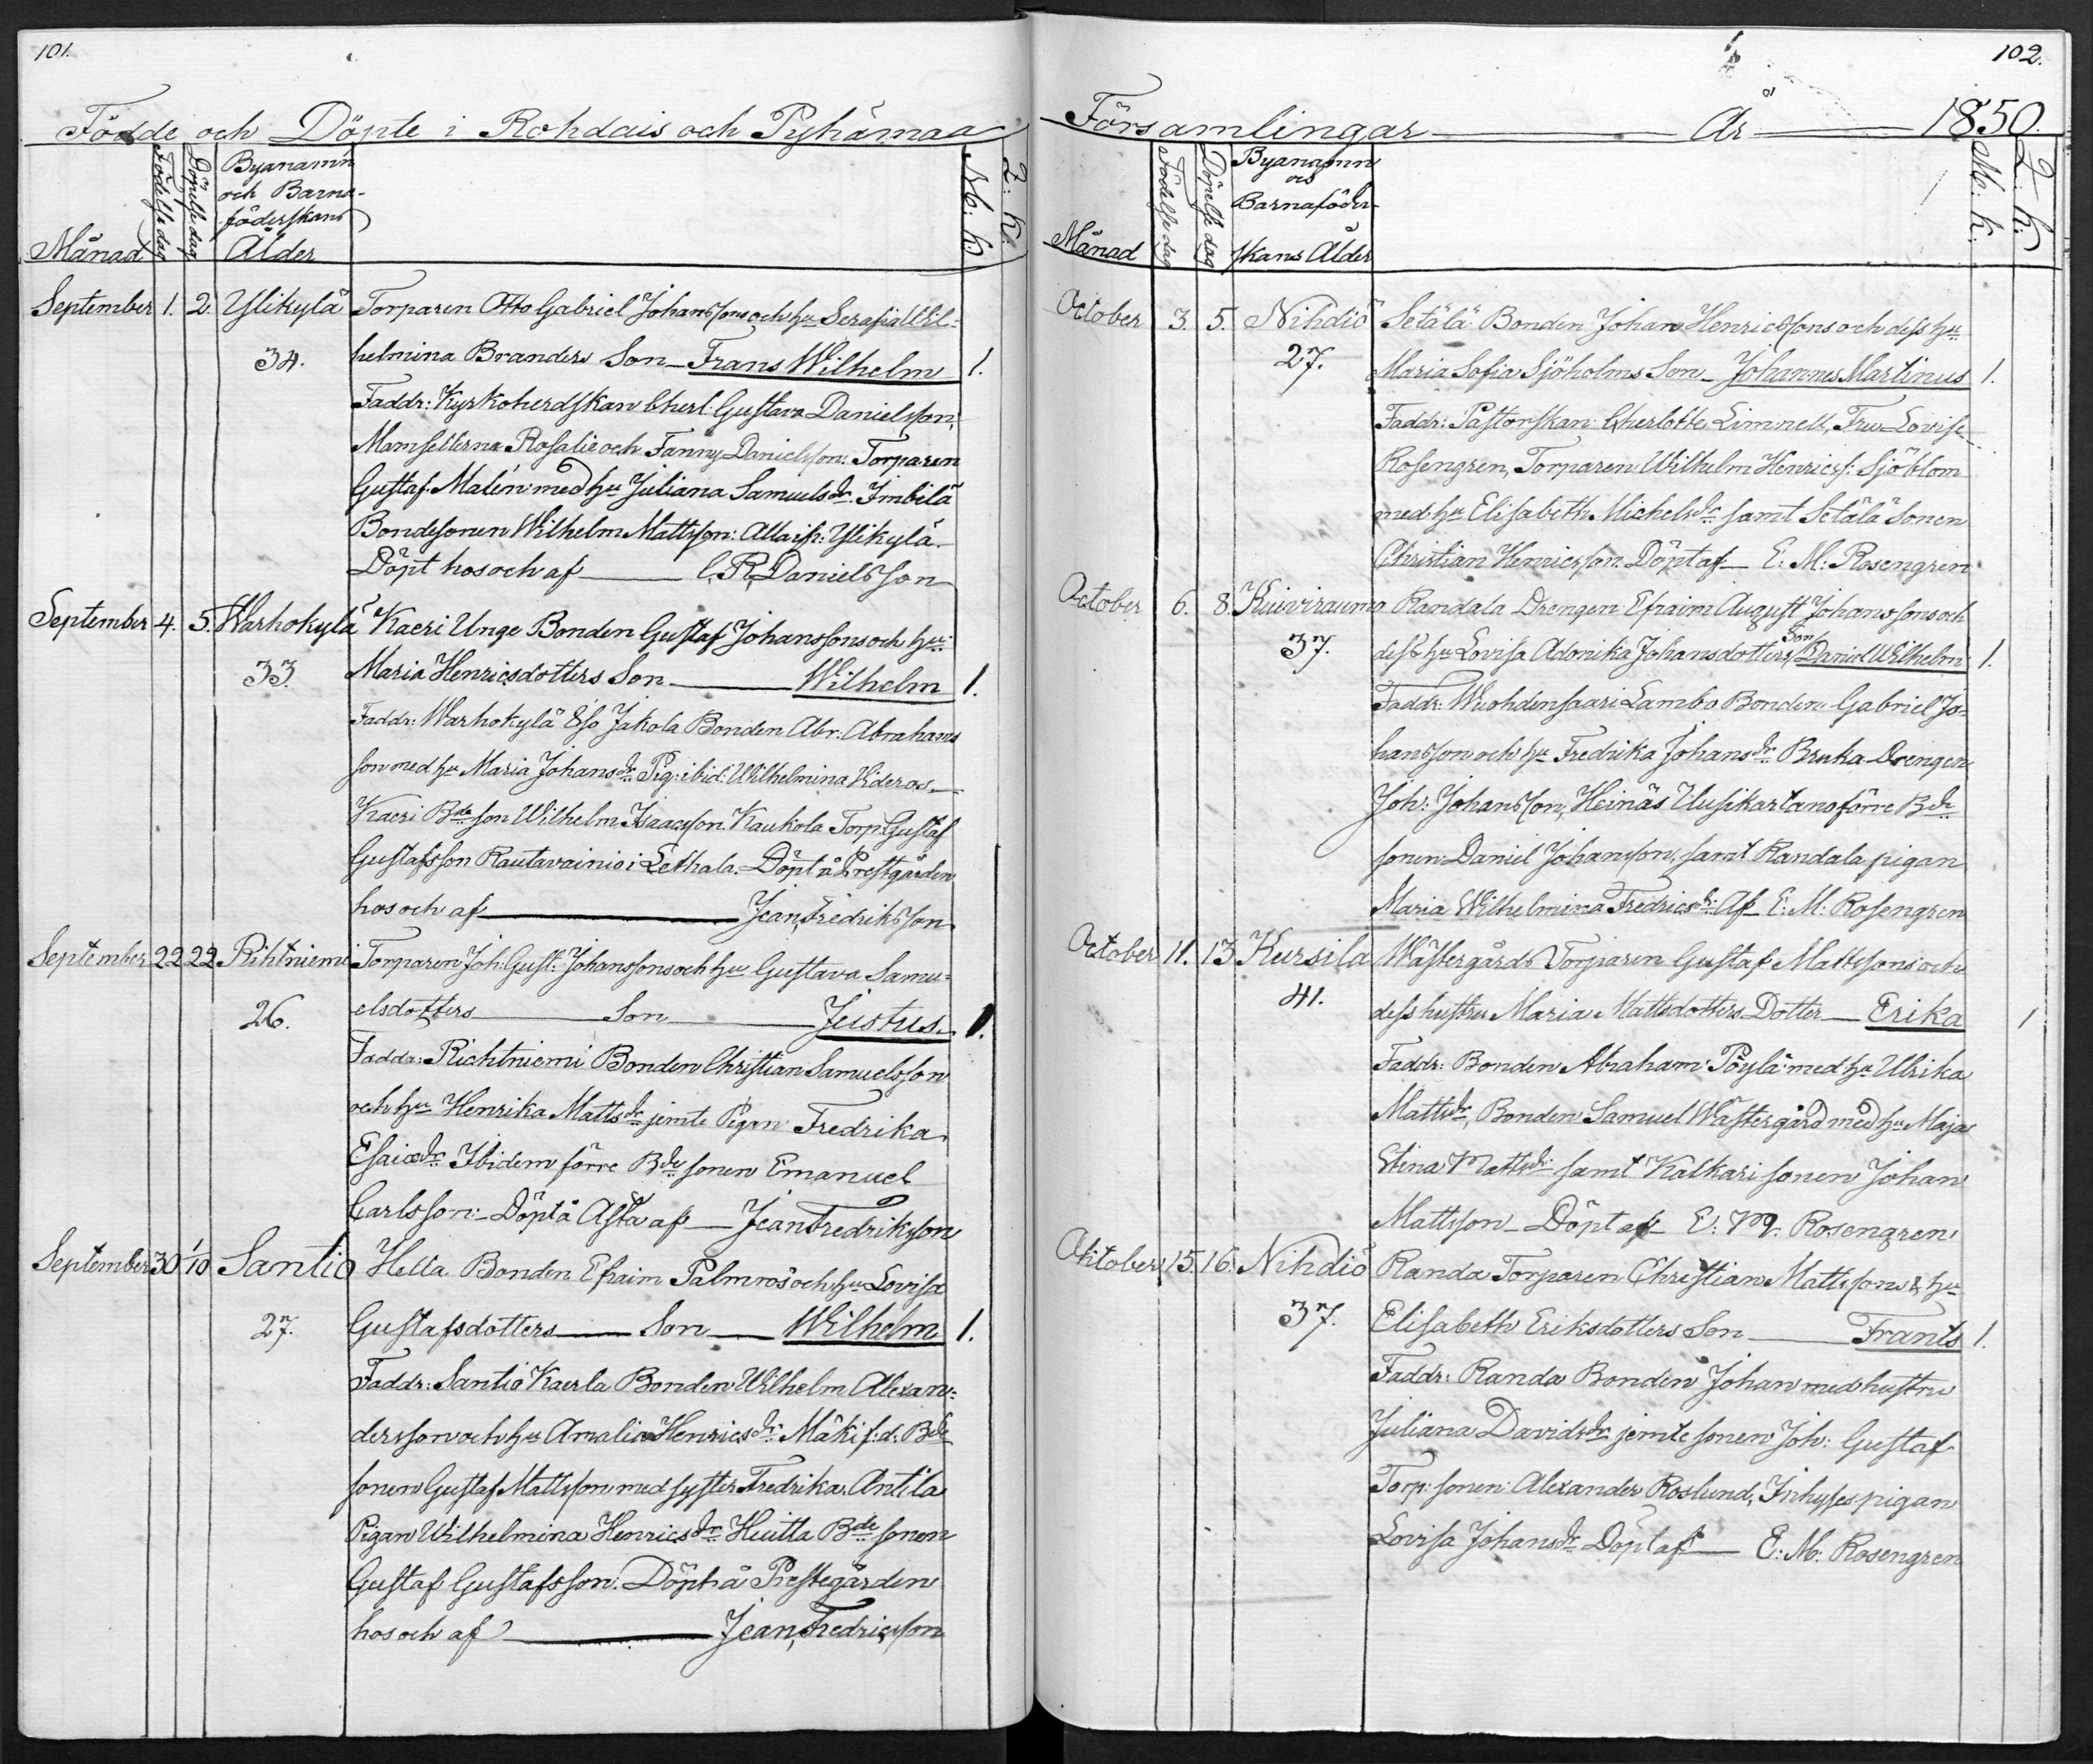 101.
Födde och Döpte i Rohdais och Pyhämaa
Månad
Födelse dag
Döpelse dag
Byanamn
och Barna-
föderskans
Ålder
M. K.
Q. K.
September 1. 2. Ylikylä Torparen Otto Gabriel Johanssons och hu Serafia Wil-
34. helmina Branders Son Frans Wilhelm 1.
Faddr: Kyrkoherdskan Charl: Gustava Danielsson,
Mamsellerna Rosalie och Fanny Danielsson: Torparen
Gustaf Malén med hu Juliana Samuelsdr Imbilä
Bondesonen Wilhelm Mattsson: Alla ifr: Ylikylä.
Döpt hos och af C. R. Danielsson
September 4. 5. Warhokylä Kaeri Unge Bonden Gustaf Johanssons och hu
33. Maria Henricsdotters Son Wilhelm 1.
Faddr: Warhokylä Eso Jakola Bonden Abr: Abrahams
son med hu Maria Johansdr Pig: ibid: Wilhelmina Videros
Kaeri Bde son Wilhelm Isaacsson. Kaukola Torp: Gustaf
Gustafsson Rautavainio i Lethala. Döpt å Prestgården
hos och af Jean Fredriksson
September 22 22 Rihtniemi Torparen Joh: Gust: Johanssons och hu Gustava Samu-
26. elsdotters Son Justus 1.
Faddr: Richtniemi Bonden Christian Samuelsson
och hu Henrika Mattsdr jemte Pigan Fredrika
Esaiædr Ibidem förre Bde sonen Emanuel
Carlsson: Döpt å Asta af Jean Fredriksson
September 30 1/10 Santio Hella Bonden Efraim Palmros och hu Lovisa
27. Gustafsdotters Son Wilhelm 1.
Faddr: Santio Kaerla Bonden Wilhelm Alexan-
dersson och hu Amalia Henricsdr Mäki f.d. Bde
sonen Gustaf Mattsson med syster Fredrika. Antila
Pigan Wilhelmina Henricsdr Huitta Bde sonen
Gustaf Gustafsson: Döpt å Prestegården
hos och af Jean Fredricsson
102.
Församlingar År 1850.
Månad
Födelse dag
Döpelse dag
Byanamn
och
Barnaföder-
skans Ålder
M. K.
Q. K.
October 3. 5. Nihdiö Setälä Bonden Johan Henricssons och dess hu
27. Maria Sofia Sjöholms Son Johannes Martinus 1.
Faddr: Pastorskan: Cherlotte Limnell, Fru Lovise
Rosengren, Torparen Wilhelm Henricss: Sjöblom
med hu Elisabeth Michelsdr samt Setälä Sonen
Christian Henricsson Döpt af E: M: Rosengren
October 6. 8. Kuivirauma Randala Drengen Efraim August Johanssons och
37. dess hu Lovisa Adonika Johansdotters Son Daniel Wilhelm 1.
Faddr: Wuohdensaari Lambo Bonden Gabriel Jo-
hansson och hu Fredrika Johansdr Bruka Drengen
Joh: Johansson, Heinäs Uusikartano förre Bde
sonen Daniel Johansson, samt Randala pigan
Maria Wilhelmina Fredricsdr: Af E: M: Rosengren
October 11. 13 Kursila Wästergårds Torparen Gustaf Mattssons och
41. dess hustru Maria Mattsdotters Dotter Erika 1
Faddr: Bonden Abraham Pöylä med hu Ulrika
Mattsdr, Bonden Samuel Wästergård med hu Maja
Stina Mattsdr samt Kalkari sonen Johan
Mattsson Döpt af E: M. Rosengren
Oktober 15. 16. Nihdiö Randa Torparen Christian Mattssons & hu
37. Elisabeth Eriksdotters Son Frants 1.
Faddr: Randa Bonden Johan med hustru
Juliana Davidsdr jemte sonen Joh: Gustaf
Torp: sonen: Alexander Roslund, Inhyses pigan
Lovisa Johansdr Döpt af E: M: Rosengren